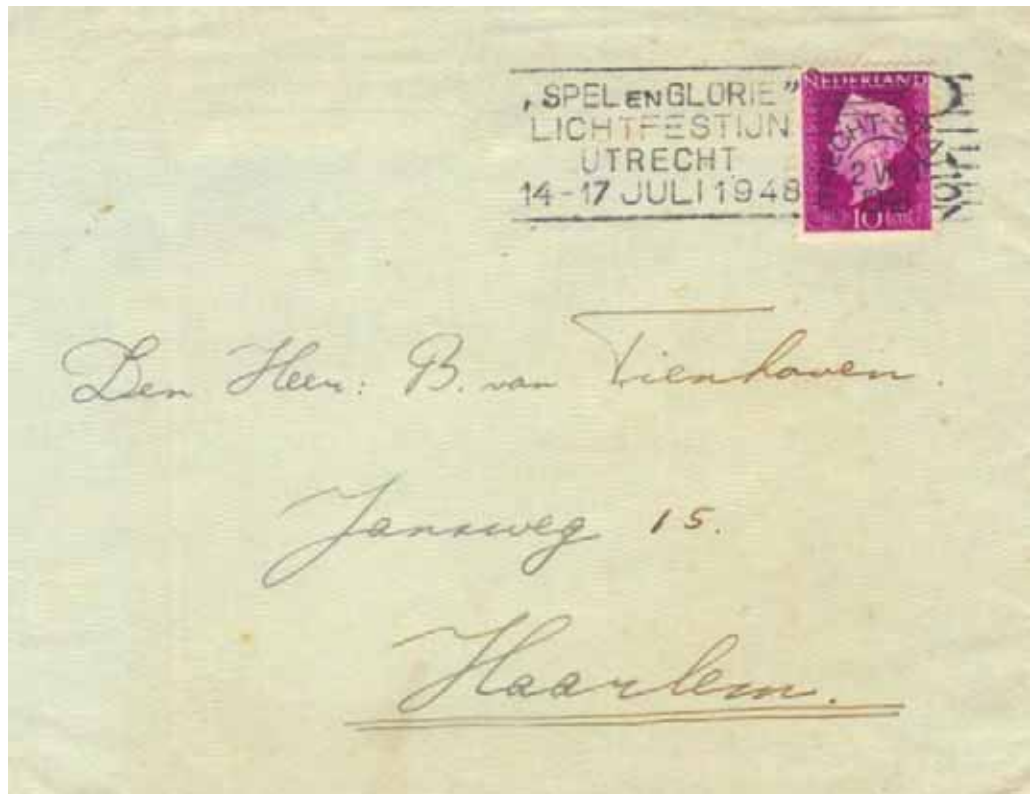 „SPEL EN GLORIE”
LICHTFESTIJN
UTRECHT
14-17 JULI 1948
NEDERLAND
10
Den Heer: B. van Tienhoven.
Jansweg 15.
Haarlem.